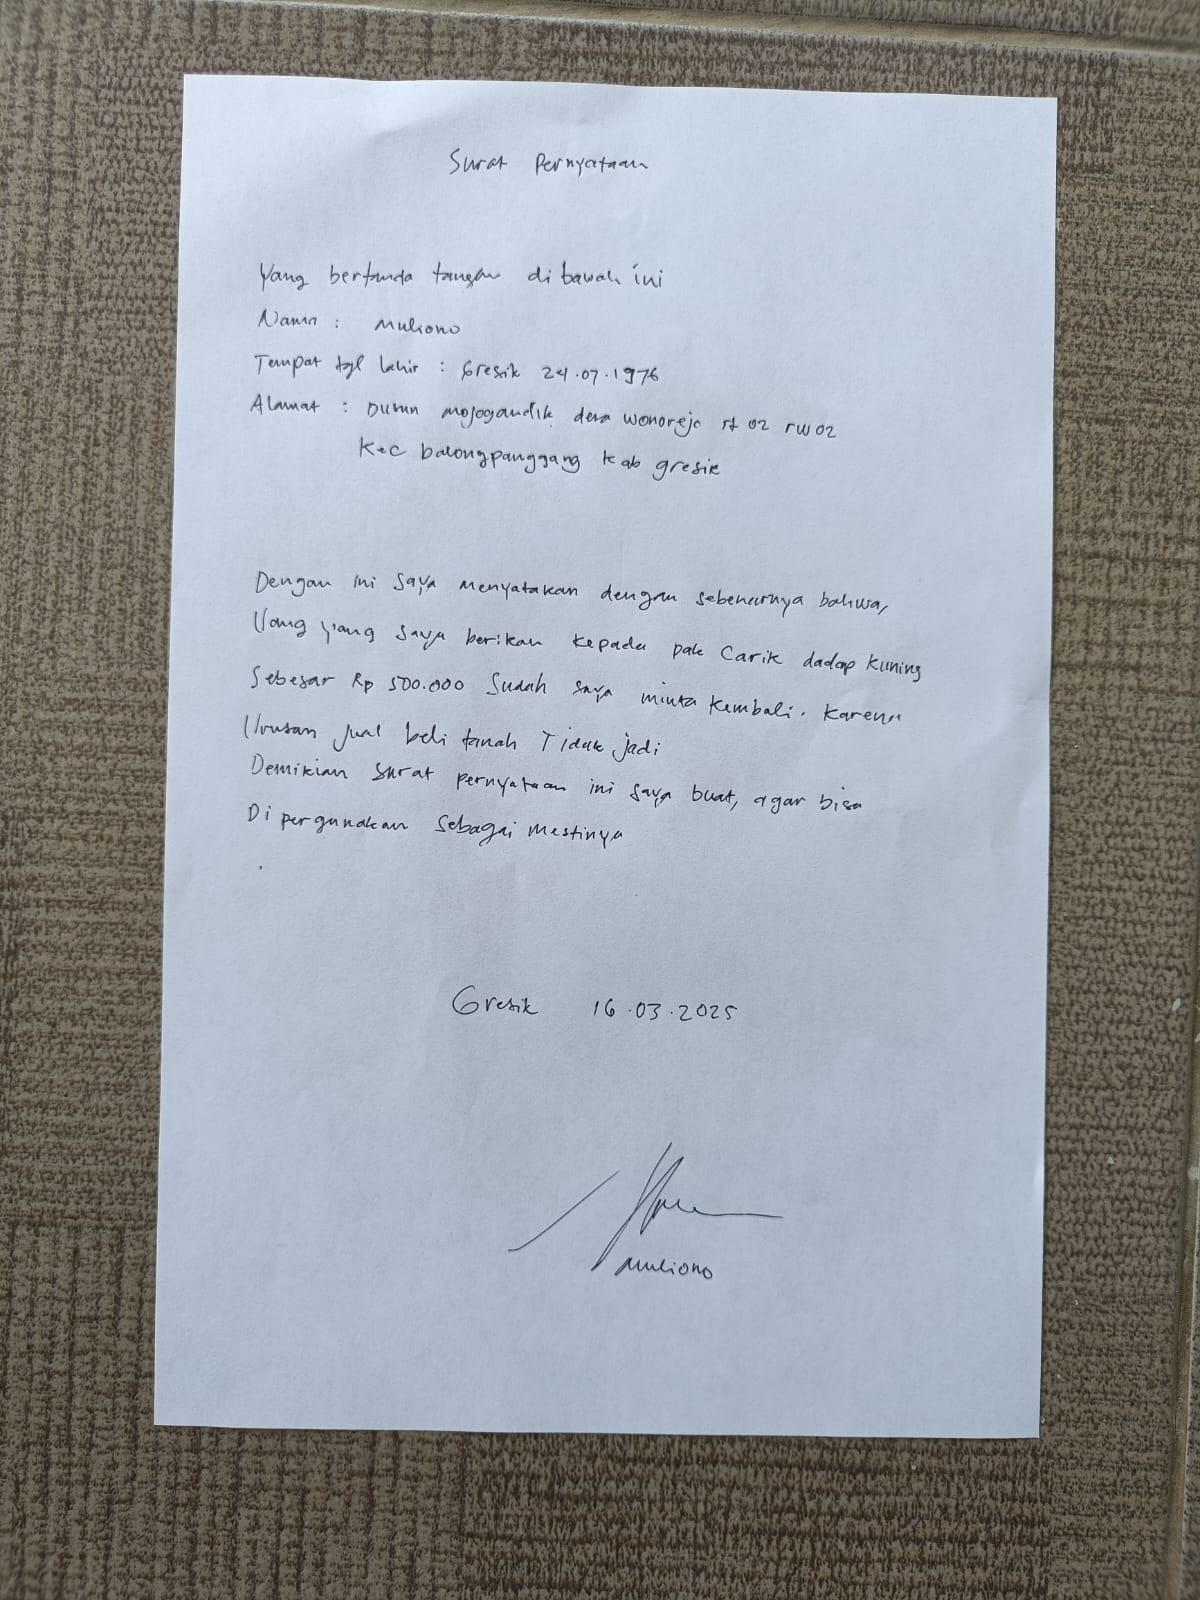 Surat Pernyataan
Yang bertanda tangan di bawah ini
Nama : Muliono
Tempat tgl lahir : Gresik 24.07.1976
Alamat : Dusun mojogandik desa wonorejo rt 02 rw 02
Kec balongpanggang kab gresik
Dengan ini saya menyatakan dengan sebenarnya bahwa,
Uang yang saya berikan kepada pak Carik dadap kuning
Sebesar Rp 500.000 Sudah saya minta kembali. Karena
Urusan Jual beli tanah Tidak jadi
Demikian surat pernyataan ini saya buat, agar bisa
Di pergunakan sebagai mestinya
Gresik 16.03.2025
muliono